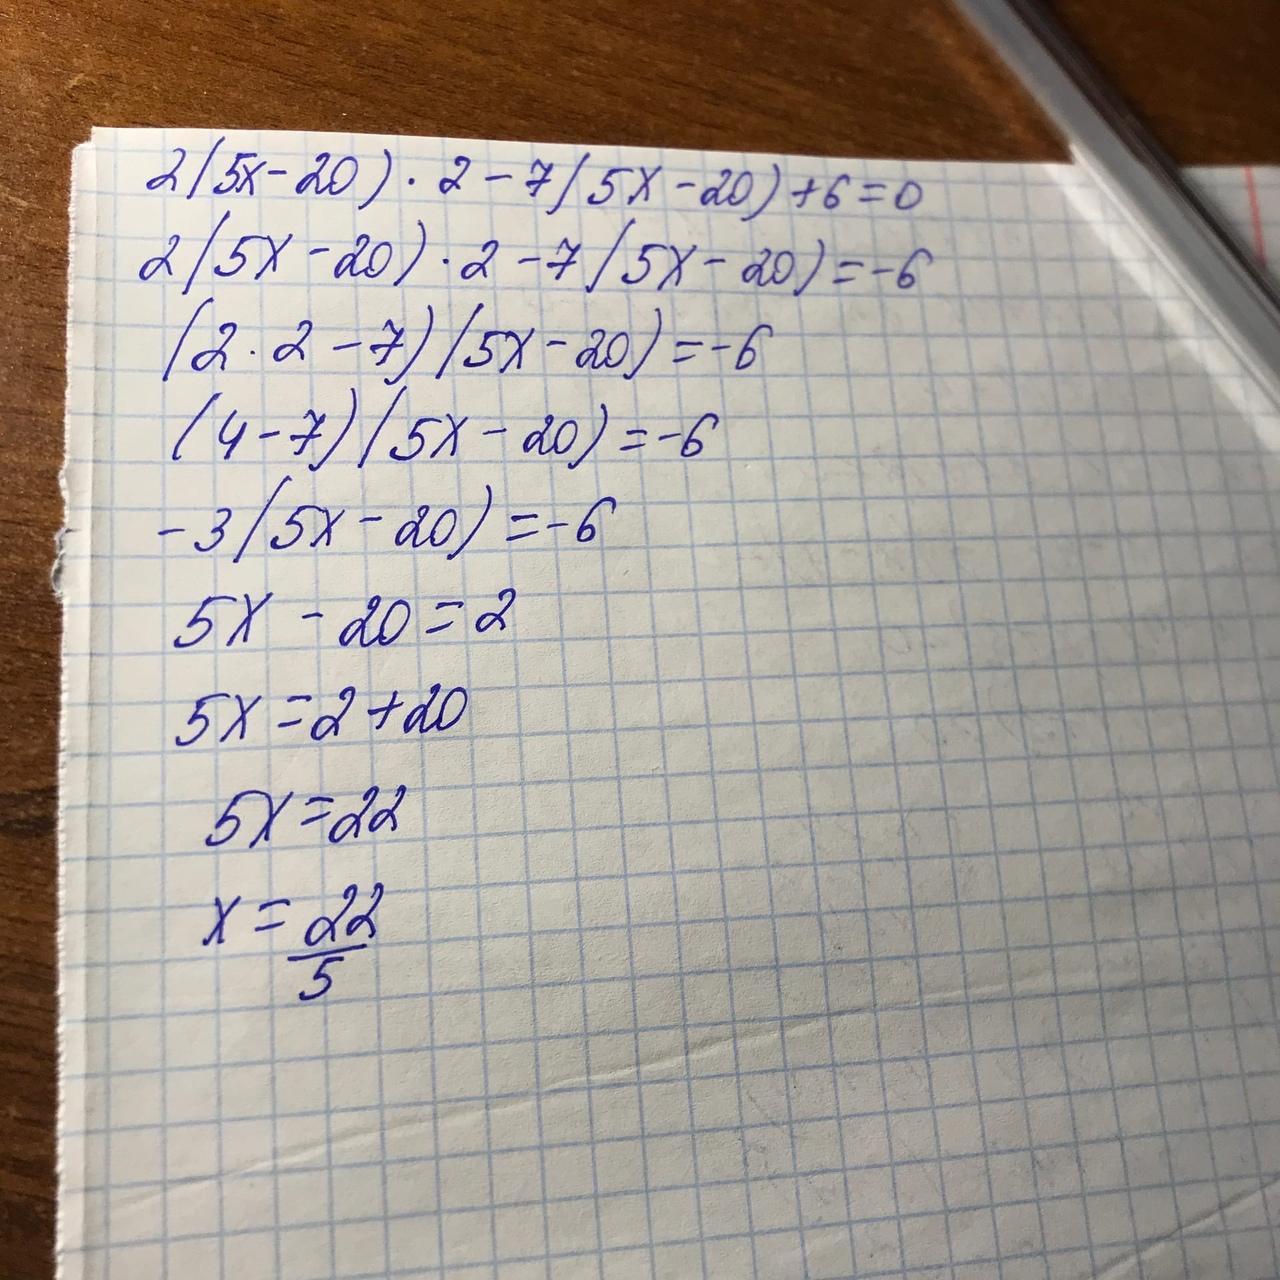 2(5x-20)·2-7(5x-20)+6=0
2(5x-20)·2-7(5x-20)=-6
(2·2-7)(5x-20)=-6
(4-7)(5x-20)=-6
-3(5x-20)=-6
5x-20=2
5x=2+20
5x=22
x=22/5